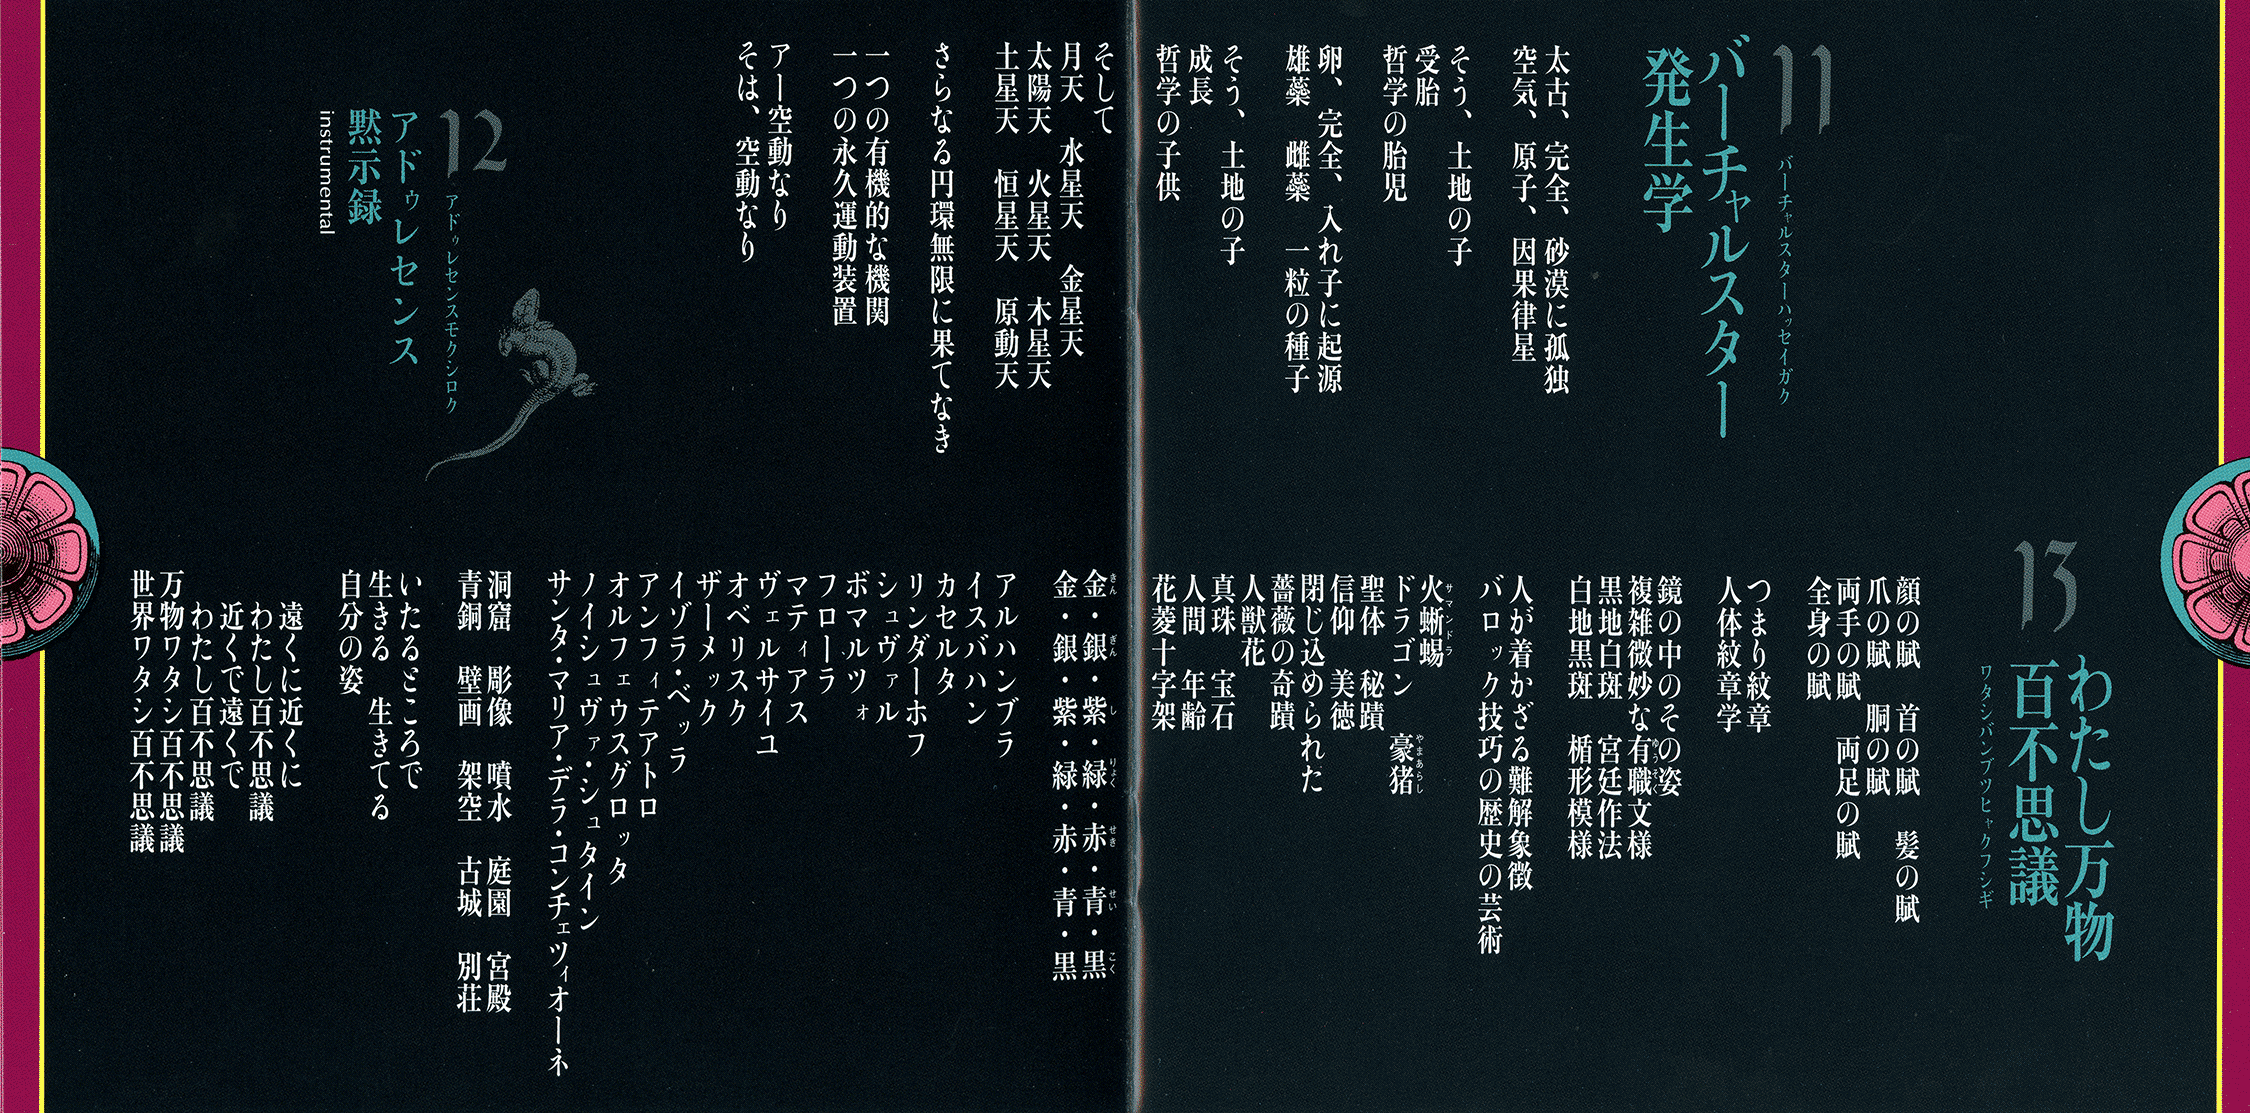 11
バーチャルスターハッセイガク
バーチャルスター
発生学
太古、完全、砂漠に孤独
空気、原子、因果律星
そう、土地の子
受胎
哲学の胎児
卵、完全、入れ子に起源
雄蘂　雌蘂　一粒の種子
そう、土地の子
成長
哲学の子供
そして
月天　水星天　金星天
太陽天　火星天　木星天
土星天　恒星天　原動天
さらなる円環無限に果てなき
一つの有機的な機関
一つの永久運動装置
アー空動なり
そは、空動なり
12
アドゥレセンスモクシロク
アドゥレセンス
黙示録
instrumental
13
わたし万物
百不思議
ワタシバンブツヒャクフシギ
顔の賦　首の賦　髪の賦
爪の賦　胴の賦
両手の賦　両足の賦
全身の賦
つまり紋章
人体紋章学
鏡の中のその姿
複雑微妙な有職文様
ゆうそく
黒地白斑　宮廷作法
白地黒斑　楯形模様
人が着かざる難解象徴
バロック技巧の歴史の芸術
火蜥蜴
サマンドラ
ドラゴン　豪猪
やまあらし
聖体　秘蹟
信仰　美徳
閉じ込められた
薔薇の奇蹟
人獣花
真珠　宝石
人間　年齢
花菱十字架
金・銀・紫・緑・赤・青・黒
きん　ぎん　し　りょく　せき　せい　こく
金・銀・紫・緑・赤・青・黒
アルハンブラ
イスバハン
カセルタ
リンダーホフ
シュヴァル
ボマルツォ
フローラ
マティアス
ヴェルサイユ
オベリスク
ザーメック
イゾラ・ベッラ
アンフィテアトロ
オルフェウスグロッタ
ノイシュヴァ・シュタイン
サンタ・マリア・デラ・コンチェツィオーネ
洞窟　彫像　噴水　庭園　宮殿
青銅　壁画　架空　古城　別荘
いたるところで
生きる　生きてる
自分の姿
遠くに近くに
わたし百不思議
近くで遠くで
わたし百不思議
万物ワタシ百不思議
世界ワタシ百不思議